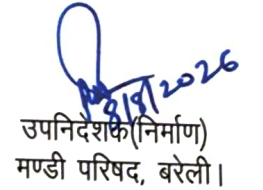 8/8/2026
उपनिदेशक(निर्माण)
मण्डी परिषद, बरेली।